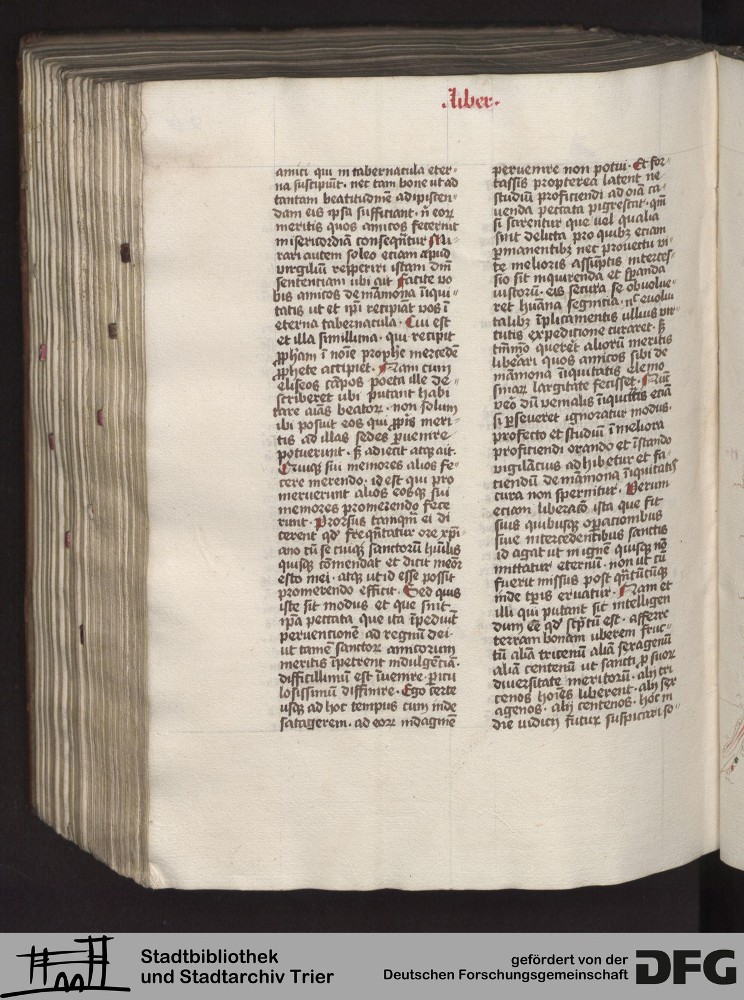 Liber.
amici qui in tabernacula eter-
na suscipiūt. nec tam bone ut ad
tantam beatitudinē adipiscen-
dam eis ipsa sufficiant. n̄ eoꝝ
meritis quos amicos fecerūt
misericordiā consequātur Mi-
rari autem soleo eciam apud
virgiliū repperiri istam dnī
sentenciam ubi ait Facite vo
bis amicos de māmona īiqui-
tatis ut et ipī recipiāt vos ī
eterna tabernacula. Cui est
et illa simillima. qui recipit
ꝓphetam ī noīe prophe mercedē
ꝓphete accipiet. Nam cum
eliseos cāpos poeta ille de-
scriberet ubi putant habi
tare aīas beatoꝝ. non solum
ibi posuit eos qui ꝓpriis meri-
tis ad illas sedes ꝑvenire
potuerunt. sꝫ adiecit atqꝫ ait.
Quiqꝫ sui memores alios fe-
cere merendo. id est qui pro
meruerunt alios eosqꝫ sui
memores promerendo fece
runt. Prorsus tamqm̄ ei di
cerent qd' freq̄ntatur ore xp̄i-
ano cū se cuiqꝫ sanctorū hūilis
quisqꝫ cōmendat et dicit memor
esto mei. atqꝫ ut id esse possit
promerendo efficit. Sed quis
iste sit modus et que sint
ip̄a peccata que ita īpediūt
pervencionē ad regnū dei.
ut tamē sanctoꝝ amicorum
meritis īpetrent indulgētiā.
difficillimū est īvenire. ꝑicu
losissimū diffinire. Ego certe
usqꝫ ad hoc tempus cum inde
satagerem. ad eoꝝ indaginē
pervenire non potui. Et for-
tassis propterea latent ne
studiū proficiendi ad oīa ca-
venda peccata pigrescat. qm̄
si scirentur que vel qualia
sint delicta pro quibꝫ eciam
ꝑmanentibꝫ nec provectu vi-
te melioris assūptis interces-
sio sit inquirenda et speranda
iustorū. eis secura se obvolve-
ret huāna segnicia. nec evolvi
talibꝫ īplicamentis ullius vir-
tutis expedicione curaret. sꝫ
tm̄mo quereret aliorū meritis
liberari quos amicos sibi de
māmona īiquitatis elemo
sinaꝝ largitate fecisset. Nūc
vero dū venialis īiquitatis etiā
si ꝑseveret ignoratur modus.
profecto et studiū ī meliora
proficiendi orando et īstando
vigilācius adhibetur et fa-
ciendi de māmona īiquitatis
cura non spernitur. Verum
eciam liberacō ista que fit
suis quibusqꝫ oꝑacionibus
sive intercedentibus sanctis
id agat ut in ignē quisqꝫ nō
mittatur eternū. non ut cū
fuerit missus post qn̄tūcūqꝫ
inde tꝑis eruatur. Nam et
illi qui putant sic intelligen
dum eē qd' scptū est. afferre
terram bonam uberem fruc-
tū aliā tricenū aliā seragenū
aliā centenū ut sancti ꝓ suoꝝ
diversitate meritorū. alij tri
cenos hoīes liberent. alij sex
agenos. alij centenos. hoc in
die iudicij futuꝝ suspicari so-
Stadtbibliothek
und Stadtarchiv Trier
gefördert von der
Deutschen Forschungsgemeinschaft
DFG